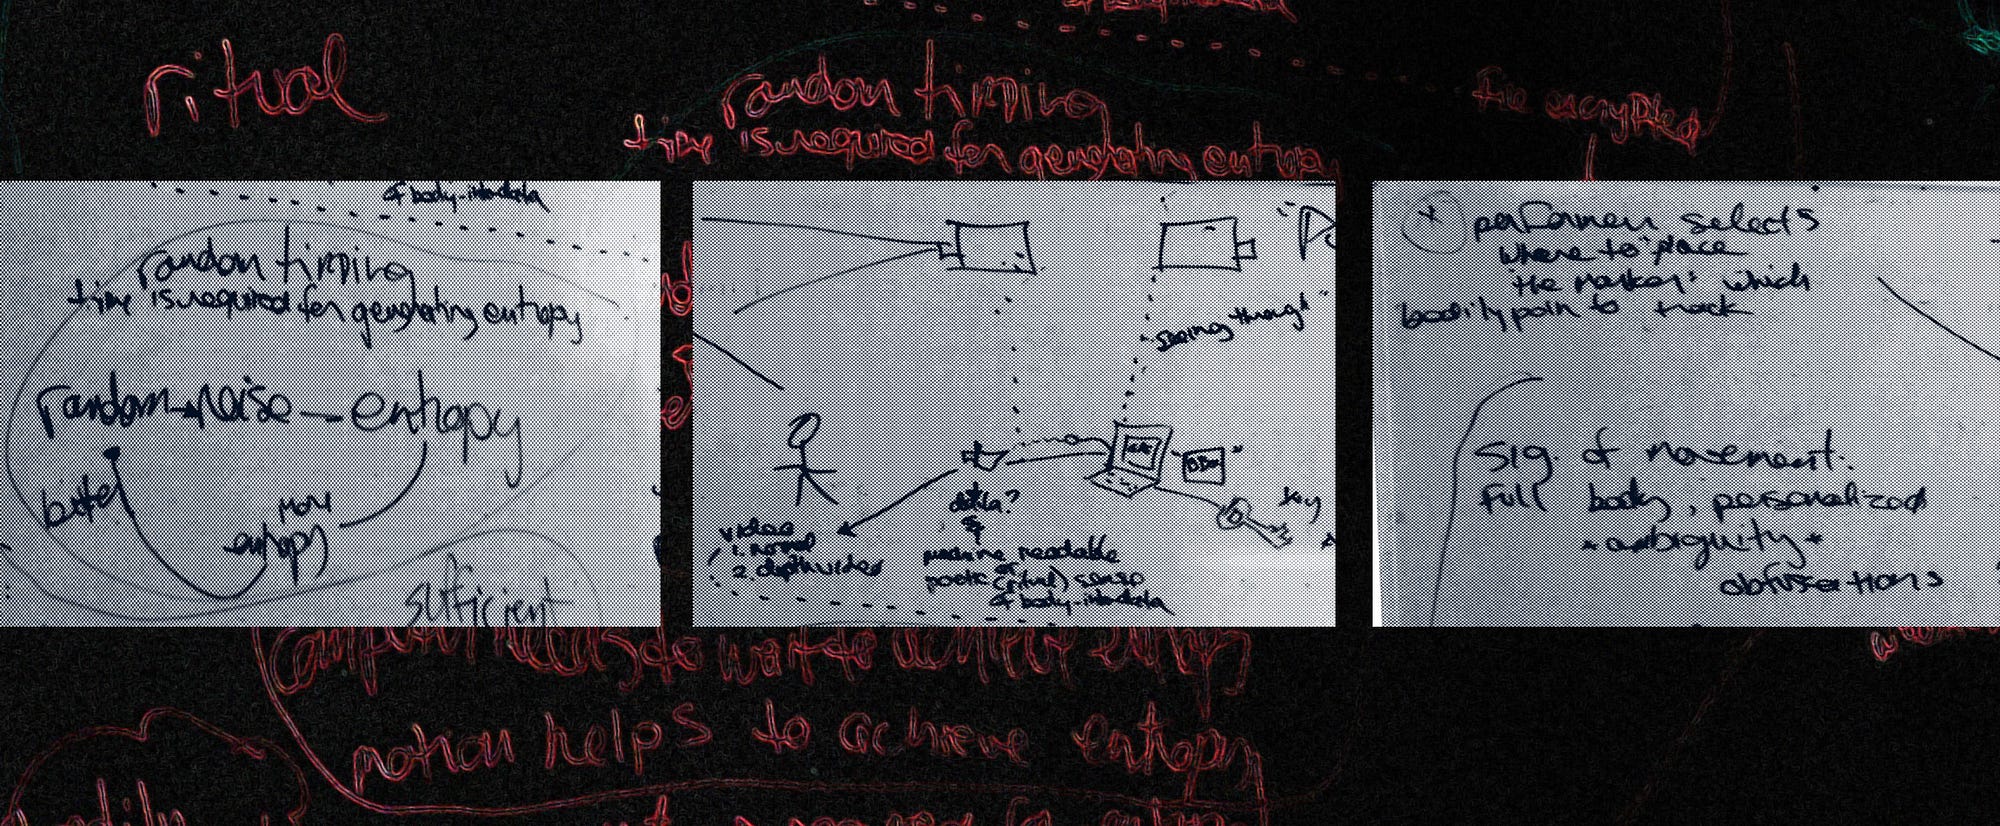 ritual
random timing
time is required for generating entropy
file encrypted
of body-into-data
random timing
time is required for generating entropy
random noise – entropy
more
entropy
sufficient
"seeing through"
key
data?
&
video
1. normal
2. depth video
machine readable
or
poetic (ritual) sense
of body-into-data
performer selects
where to "place
the marker": which
bodily point to track
sig. of movement:
full body, personalized
*ambiguity*
obfuscations
computer needs to wait to achieve entropy
motion helps to achieve entropy